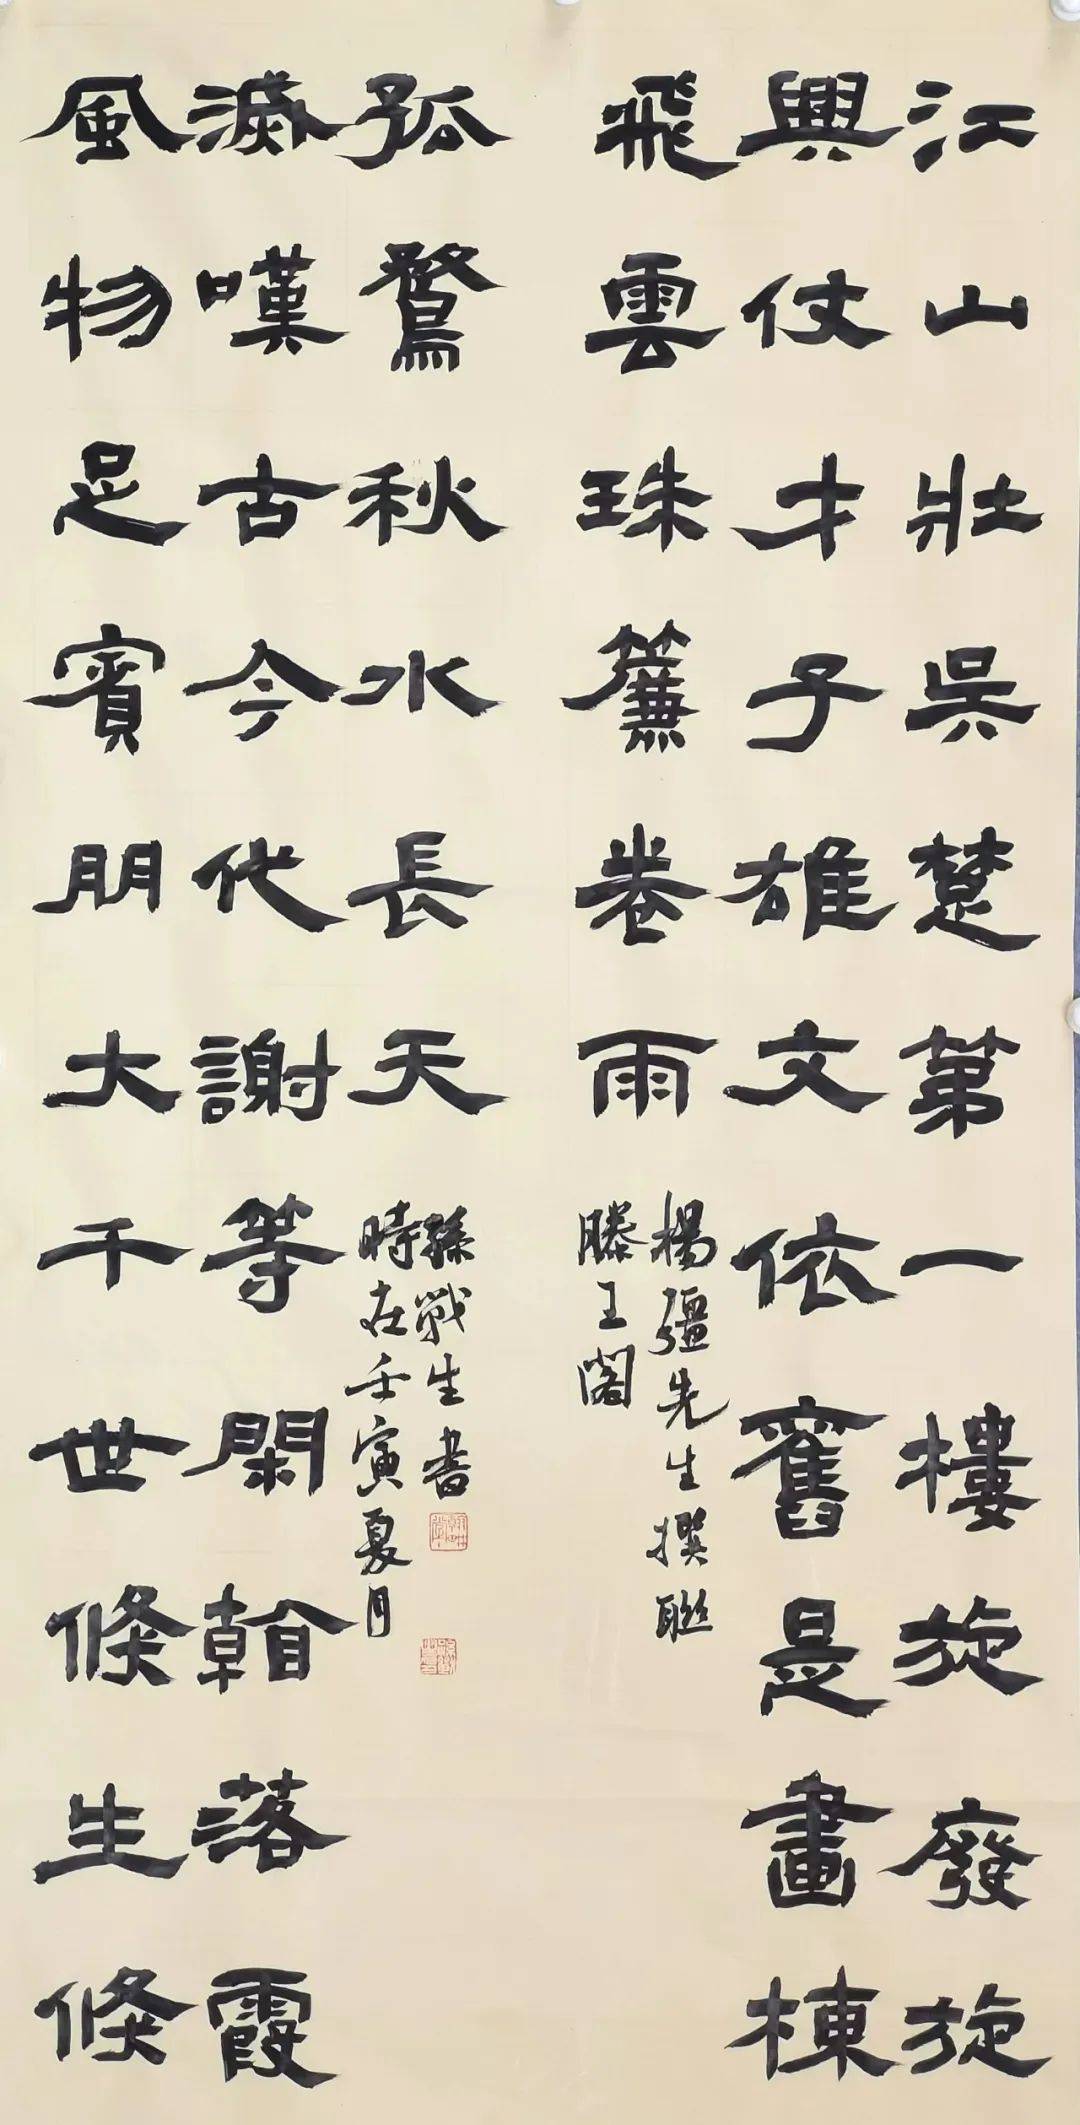 江山壯吳楚第一樓旋廢旋
興仗才子雄文依舊是畫棟
飛雲珠簾卷雨
楊彊先生撰聯
滕王閣
風物足賓朋大千世倏生倏
滅嘆古今代謝等閑落霞
孤鶩秋水長天
孫戰生書
時在壬寅夏月